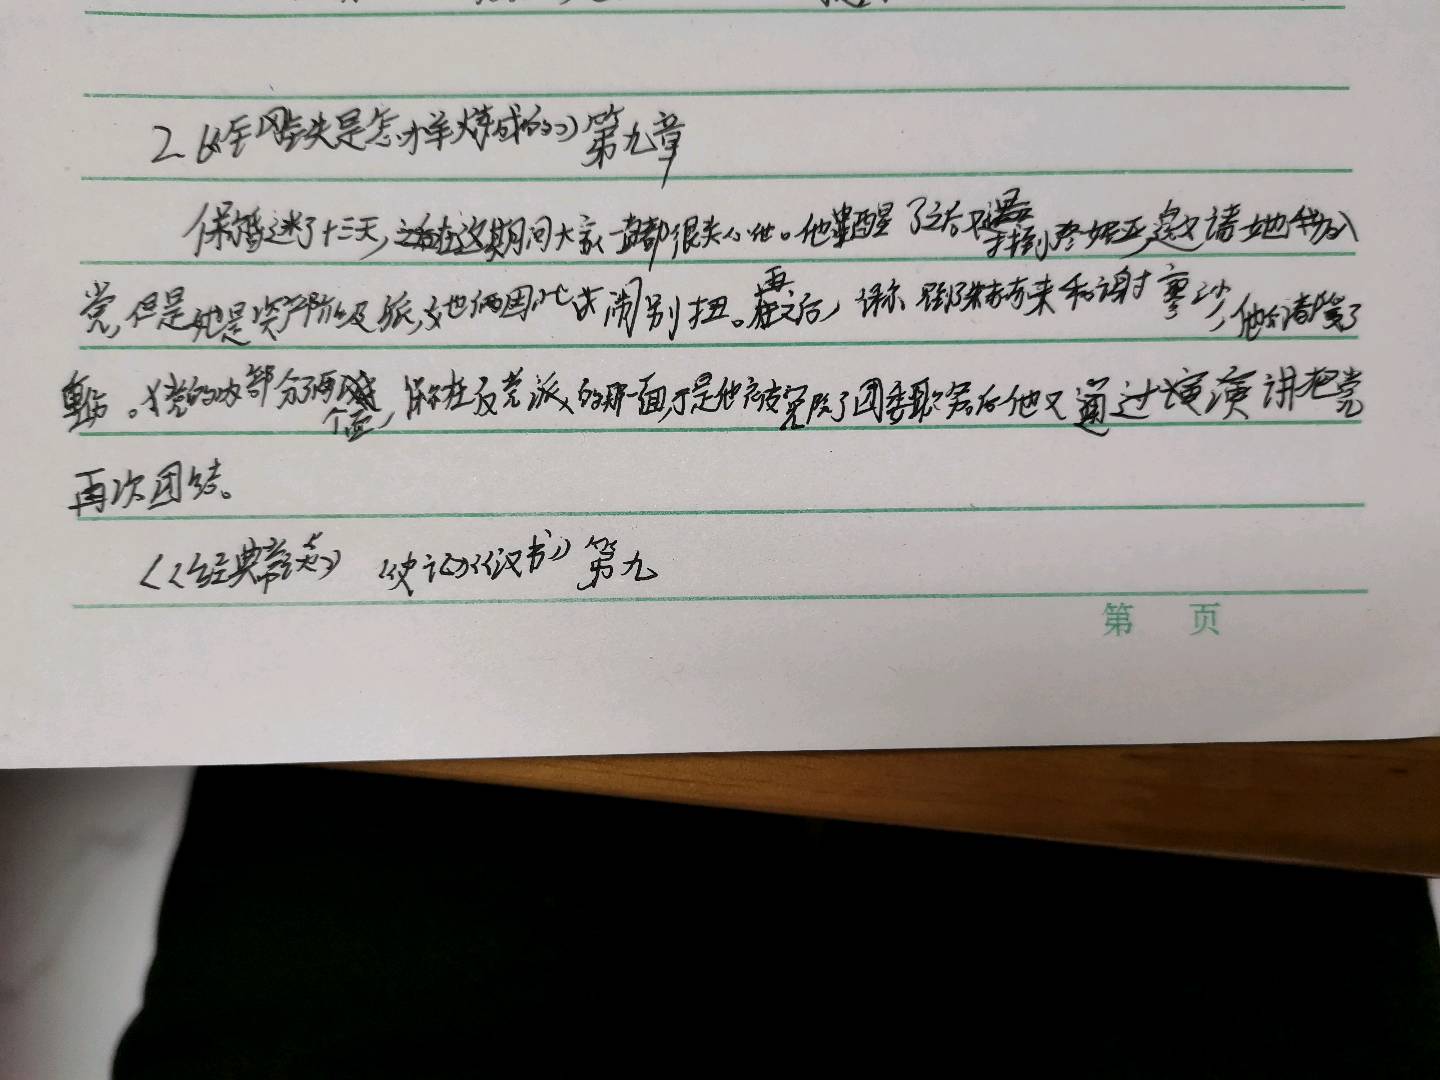 2.《钢铁是怎样炼成的》第九章
保昏迷了十三天,在这期间大家一直都很关心他。他醒了之后又找到冬妮亚,邀请她加入
党,但是她是资产阶级派,他俩因此闹别扭。再之后,保尔
。党的内部分了两个,保尔在反党派的那一面,于是他被免除了团委职务后他又通过演演讲把党
再次团结。
《经典常谈》《史记》《汉书》第九
第 页